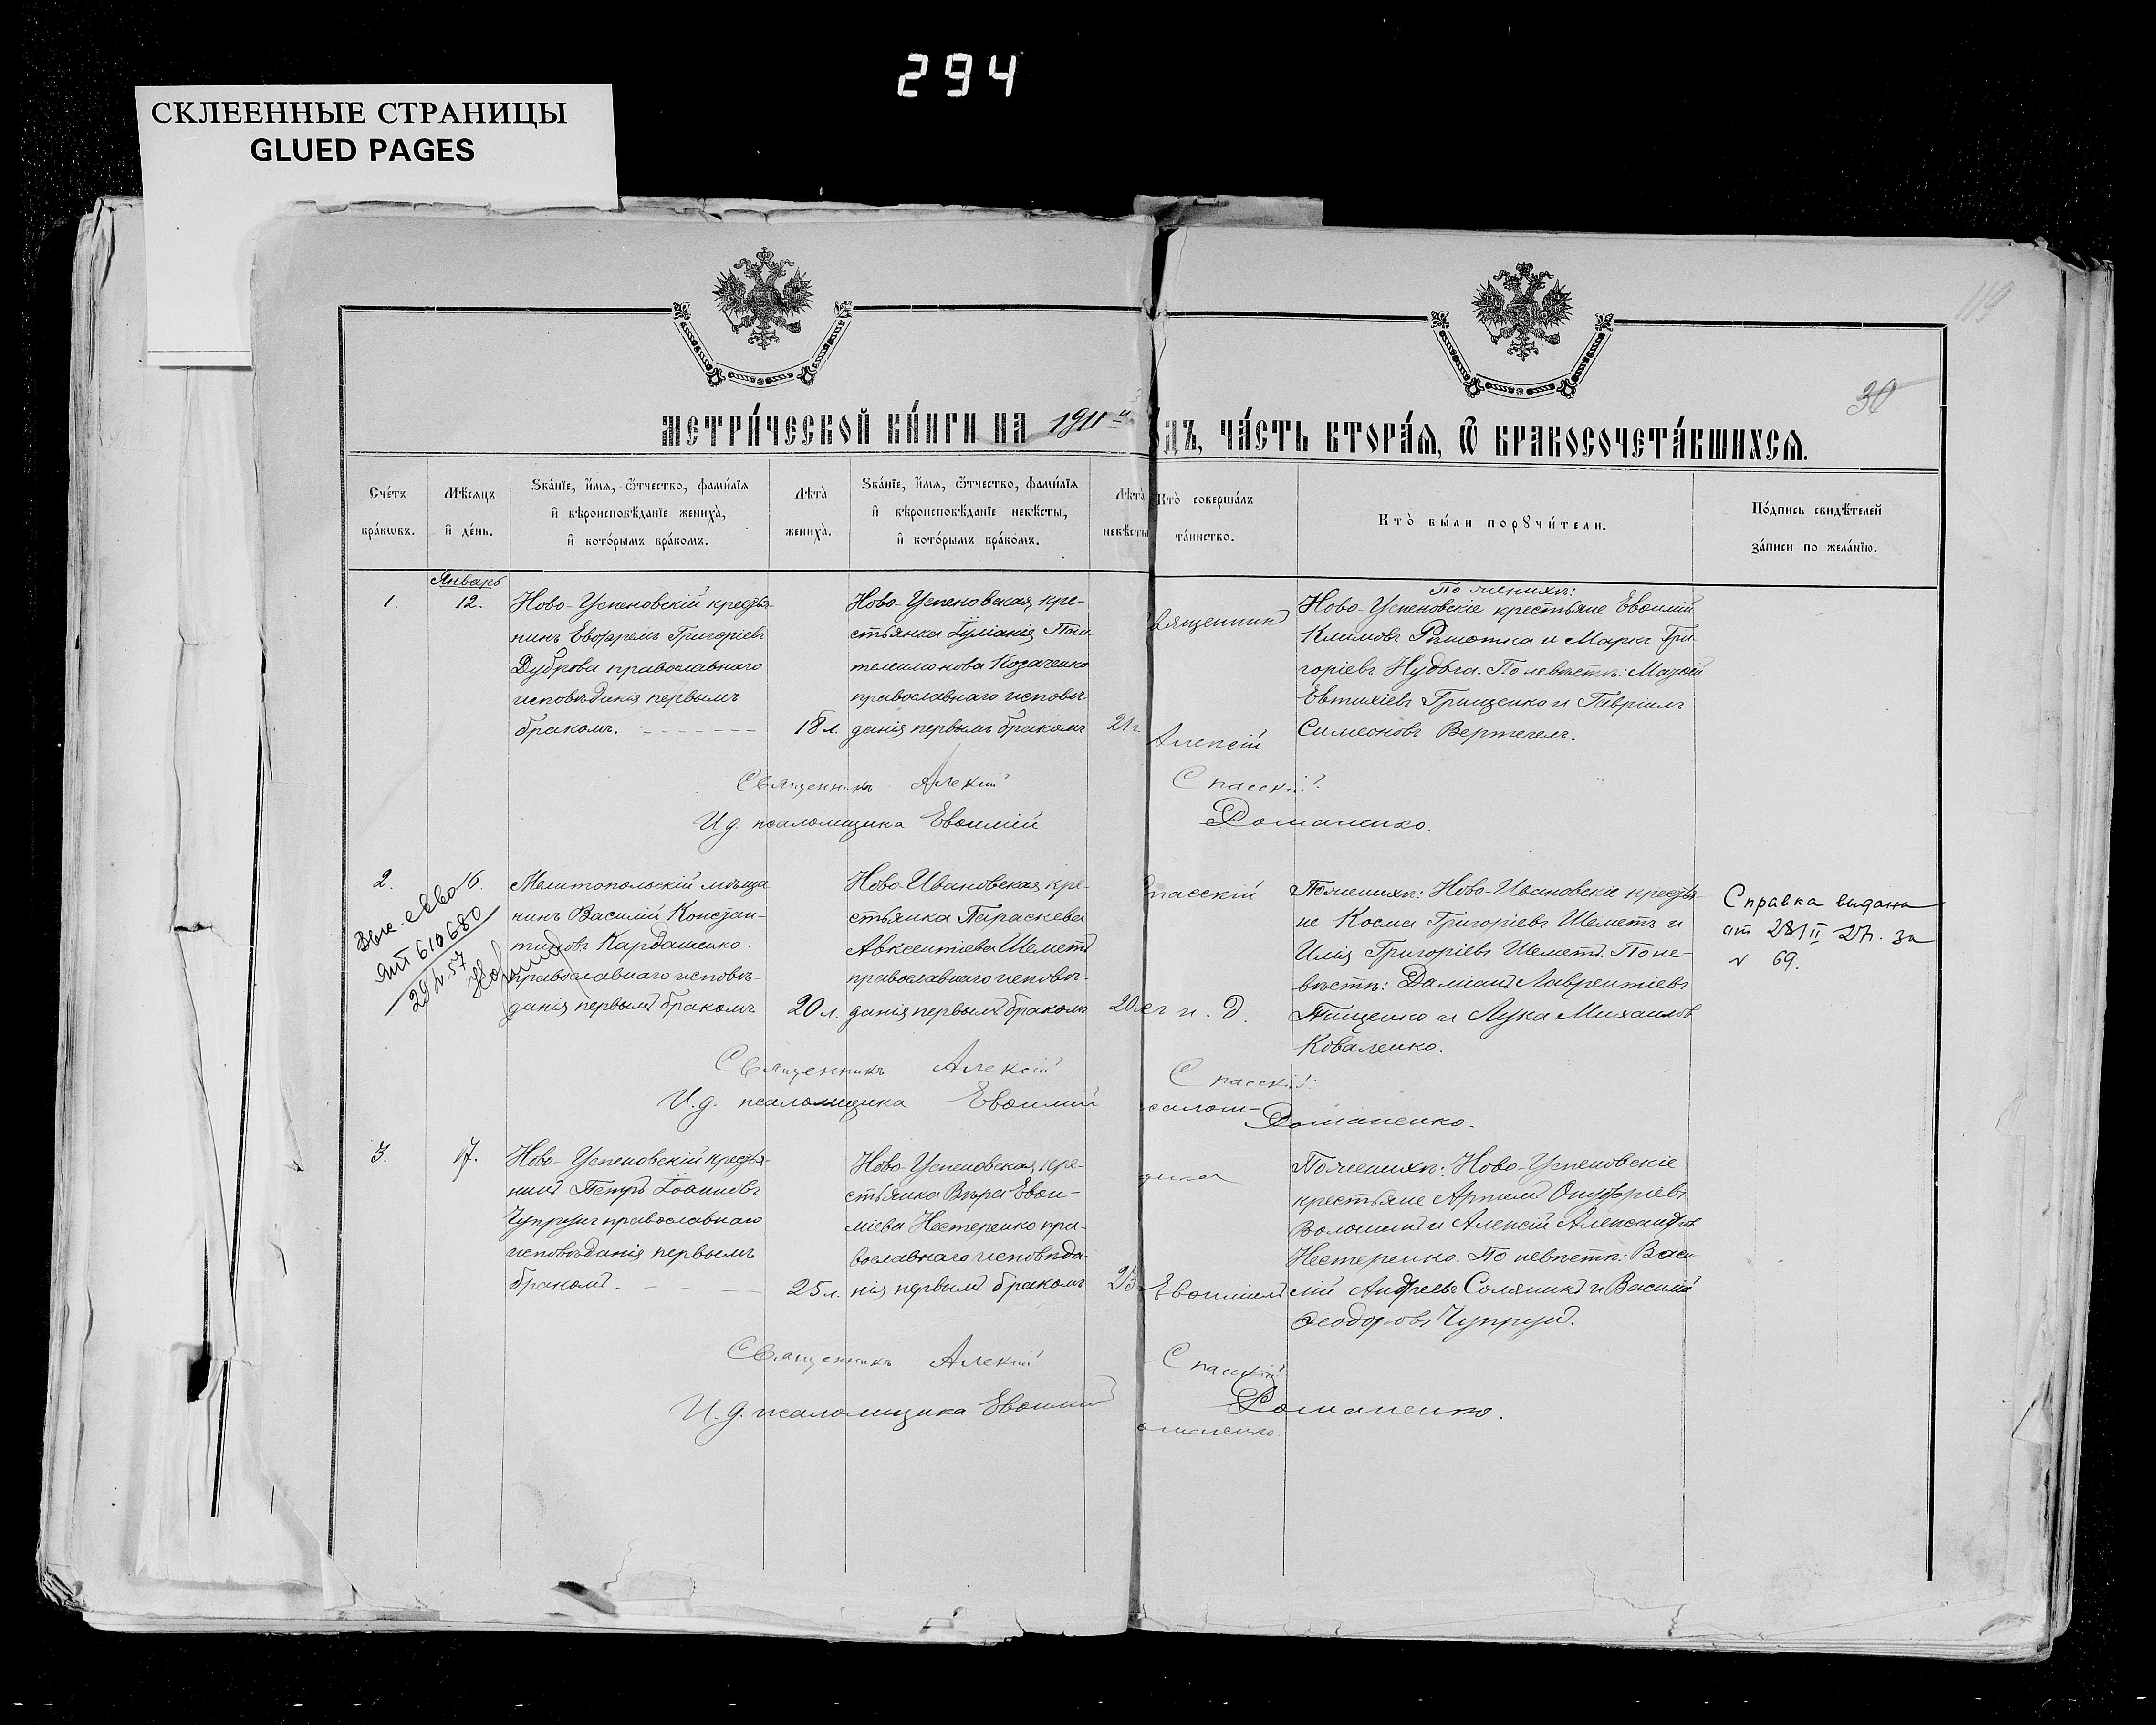 294
СКЛЕЕННЫЕ СТРАНИЦЫ
GLUED PAGES
119
30
МЕТРИ́ЧЕСКОЙ КНИ́ГИ НА 1911й
ДЪ, ЧА́СТЬ ВТОРА́Я, Ѿ БРАКОСОЧЕТА́ВШИХСЯ.
Сче́тъ бра́кѡвъ.
Мѣ́сяцъ и де́нь.
Зва́нїе, и́мя, ѻ҆́тчество, фами́лїя
и҆ вѣроисповѣ́данїе жениха̀,
и҆ кото́рымъ бра́комъ.
Лѣ́та жениха̀.
Зва́нїе, и́мя, ѻ҆́тчество, фами́лїя
и҆ вѣроисповѣ́данїе невѣ́сты,
и҆ кото́рымъ бра́комъ.
Лѣ́та невѣ́сты
Кто̀ соверша́лъ
та́инство.
Кто̀ бы́ли порꙋчи́тели.
По́дпись свидѣ́телей
за́писи по жела́нїю.
Январь
1. 12.
Ново-Успеновскій крестья-
нинъ Евфремъ Григоріевъ
Дуброва православнаго
исповѣданія первымъ
бракомъ.
18 л.
Ново-Успеновская кре-
стьянка Іуліанія Пан-
телимонова Козаченко
православнаго исповѣ-
данія первымъ бракомъ
21 г.
Священник
Алексій
По женихѣ:
Ново-Успеновскіе крестьяне Евѳимій
Климовъ Решотка и Маркъ Гри-
горіевъ Нудьга. По невѣстѣ: Матѳей
Евтихіевъ Грищенко и Гавріилъ
Симеоновъ Вертегелъ.
Священникъ Алексій Спасскій.
И д. псаломщика Евѳимій Романенко.
2. 16.
610680
Мелитопольскій мѣща-
нинъ Василій Констан-
тиновъ Кардашенко
православнаго исповѣ-
данія первымъ бракомъ
20 л.
Ново-Ивановская кре-
стьянка Параскева
Авксентіева Шеметъ
православнаго исповѣ-
данія первымъ бракомъ
20
Спасскій
съ и. д.
По женихѣ: Ново-Ивановскіе крестья-
не Косма Григоріевъ Шеметъ и
Илія Григоріевъ Шеметъ. По не-
вѣстѣ: Даміанъ Лаврентіевъ
Тищенко и Лука Михаиловъ
Коваленко.
Справка выдана
от 28/II 27г. за
№ 69.
Священникъ Алексій Спасскій.
И. д. псаломщика Евѳимій Романенко.
псалом-
3. 17.
Ново-Успеновскій крестья-
нинъ Петръ Іоанновъ
Чупрунъ православнаго
исповѣданія первымъ
бракомъ.
25 л.
Ново-Успеновская кре-
стьянка Вѣра Евѳи-
міева Нестеренко пра-
вославнаго исповѣда-
нія первымъ бракомъ
25
щика
Евѳиміемъ
По женихѣ: Ново-Успеновскіе
крестьяне Артемій Онуфріевъ
Волошинъ и Алексій Александровъ
Нестеренко. По невѣстѣ: Васи-
лій Андреевъ Соляникъ и Василій
Ѳеодоровъ Чупрунъ.
Священникъ Алексій Спасскій
И. д. псаломщика Евѳимій Романенко.
оманенко.